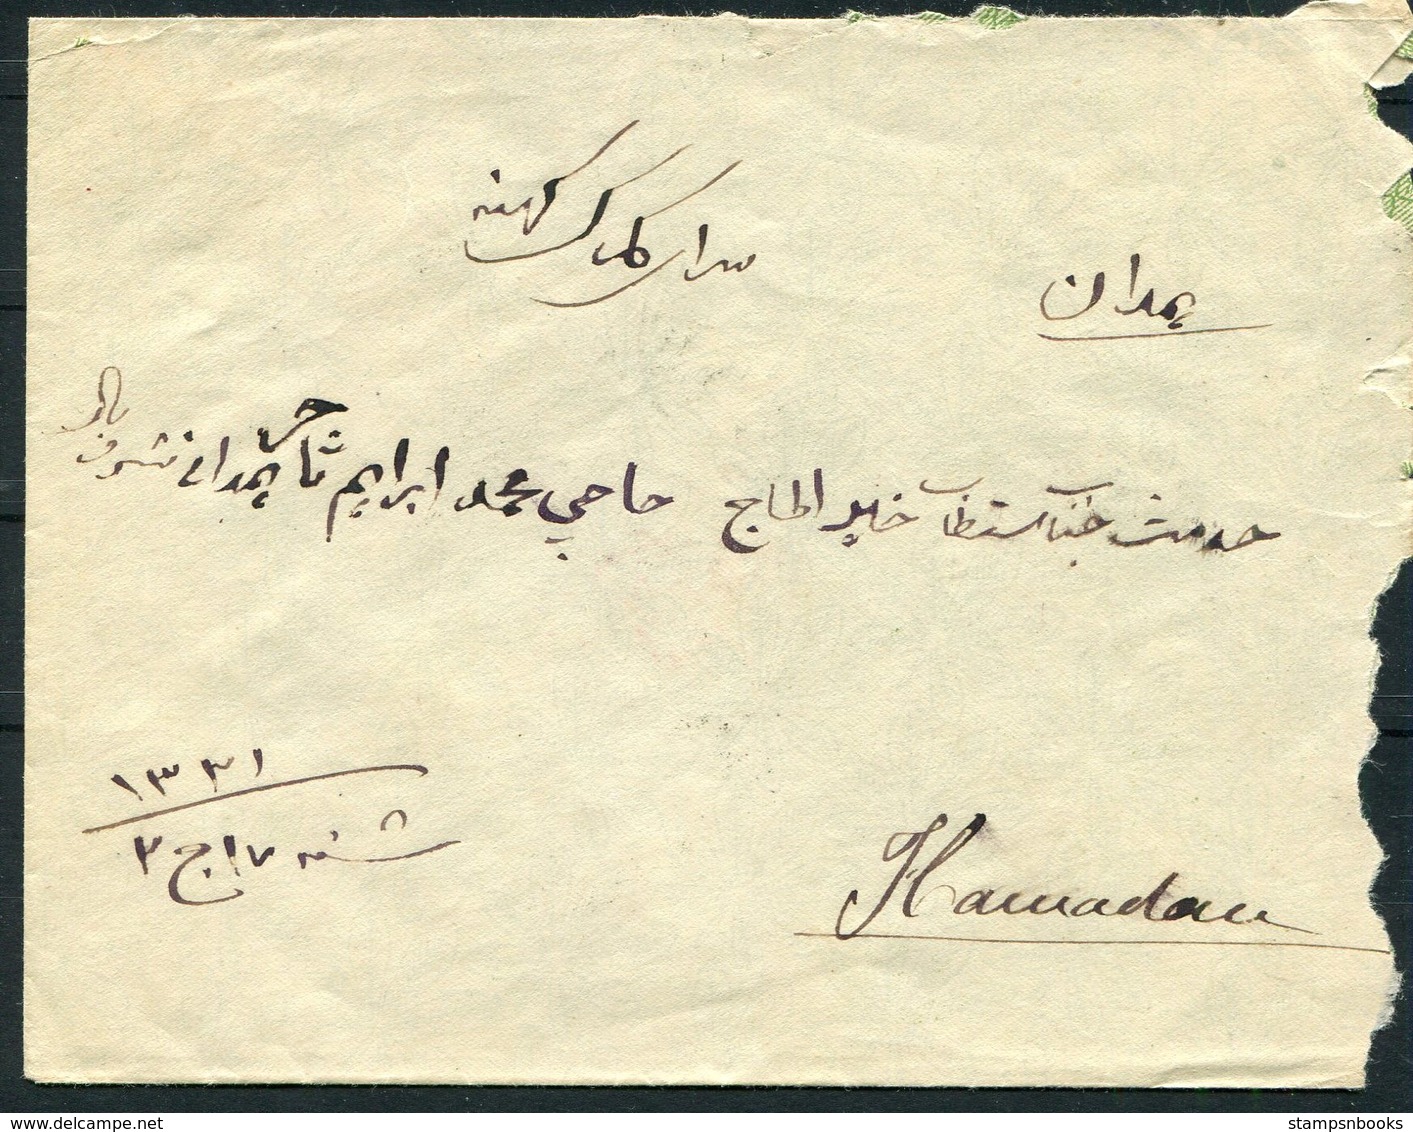 سرای گمرک کهنه
همدان
خدمت جناب مستطاب خیر الحاج حاجي محمد ابراهیم تاجر همدانی مشرف باد
۱۳۳۱
شنبه ۱۷ ج ۲
Hamadan
www.delcampe.net
stampsnbooks